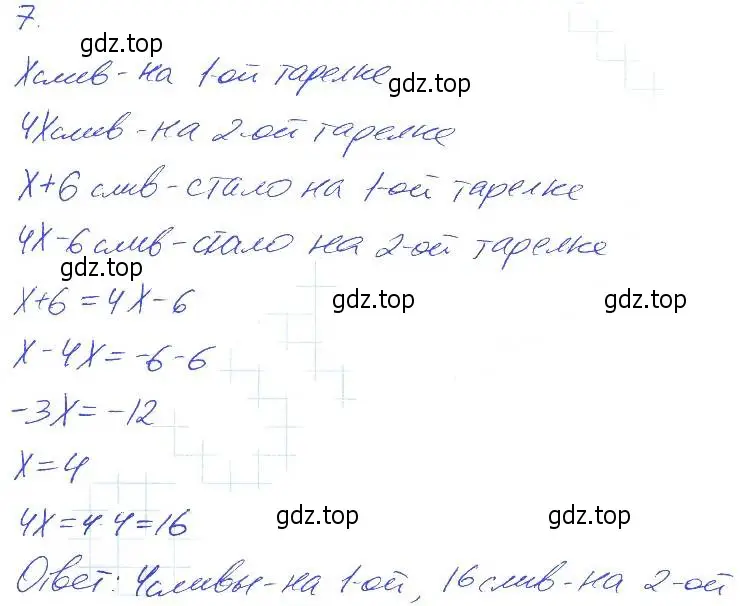 7.
gdz.top
X слив - на 1-ой тарелке
gdz.top
4X слив - на 2-ой тарелке
X+6 слив - стало на 1-ой тарелке
4X-6 слив - стало на 2-ой тарелке
gdz.top
X+6=4X-6
gdz.top
gdz.top
X-4X=-6-6
-3X=-12
X=4
4X=4·4=16
gdz.top
gdz.top
Ответ: 4 сливы - на 1-ой, 16 слив - на 2-ой